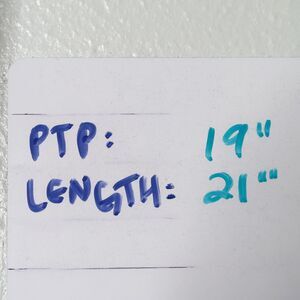 PTP: 19"
LENGTH: 21"'